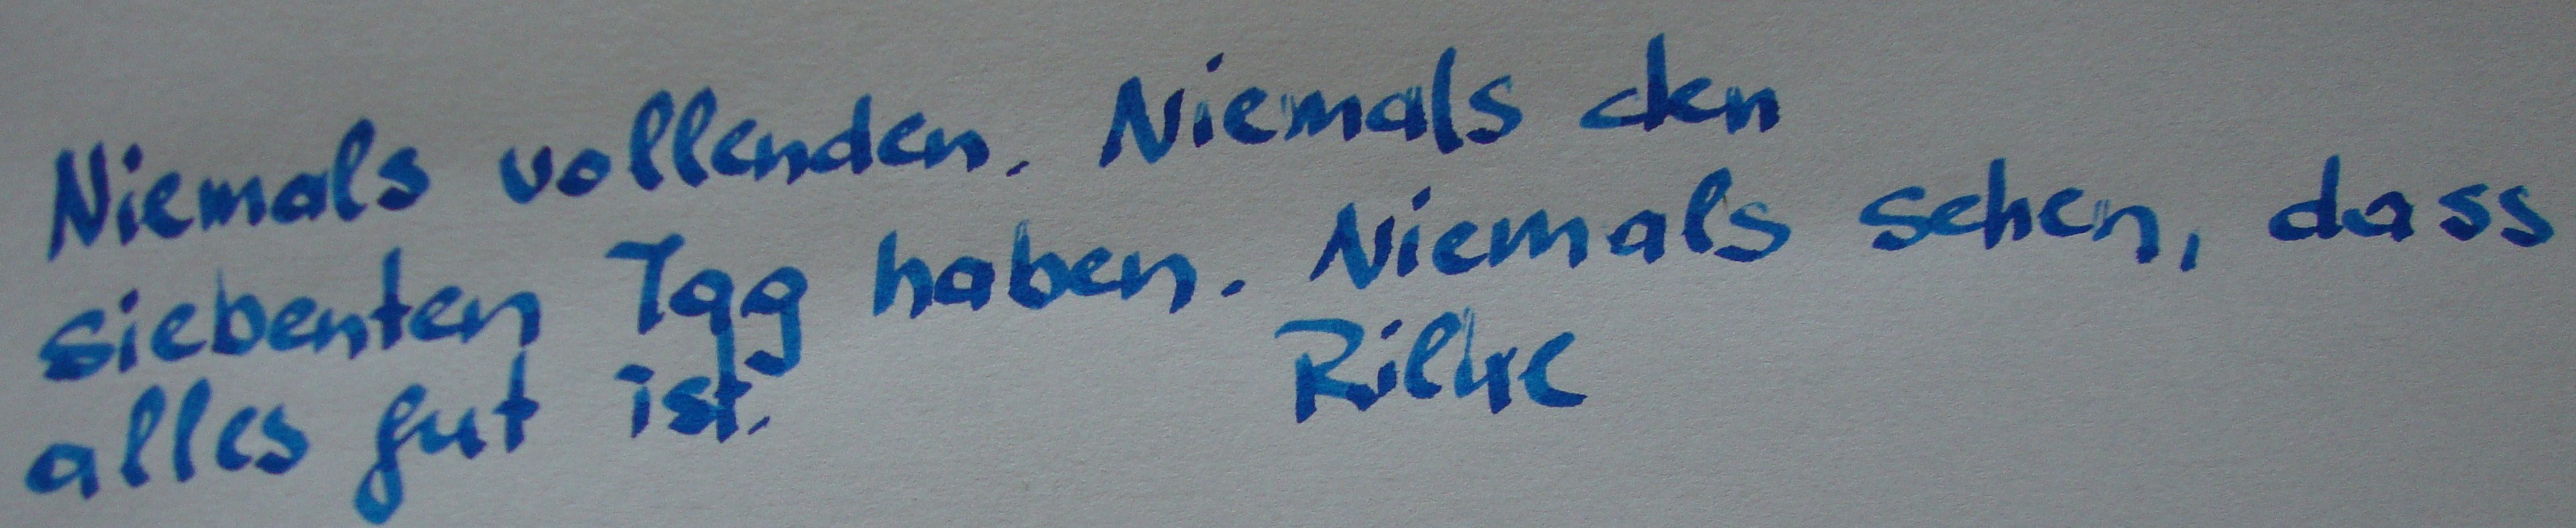 Niemals vollenden. Niemals den
siebenten Tag haben. Niemals sehen, dass
alles gut ist.
Rilke